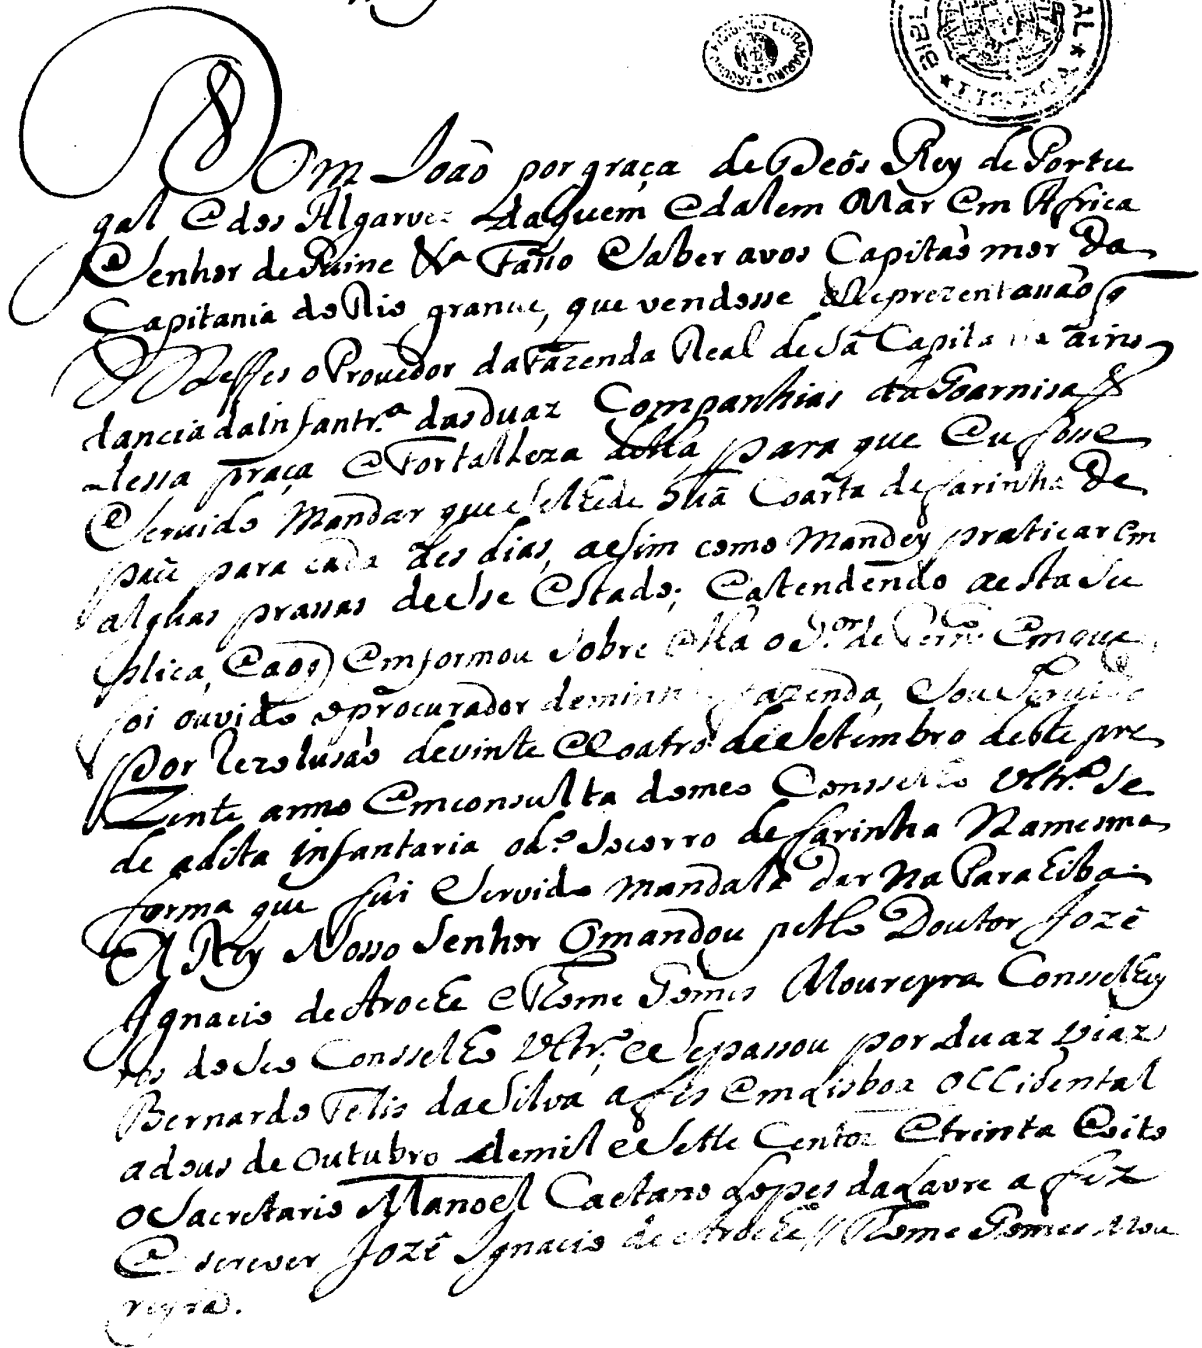 Dom João por graça de Deós Rey de Portu
gal e dos Algarves daquem e dalem Mar em Africa
Senhor de Guine &ª Faço saber avos Capitaõ mor da
Capitania do Rio grande, que vendosse a Reprezentassaõ q̃
fes o Prouedor da Fazenda Real de sã Capitania
dancia da Infantr.ª das duaz Companhias da Goarnisaõ
dessa praça e Fortalleza della, para que eu fosse
servido Mandar que selhe de huã Coarta de farinha de
paũ para cada des dias, assim como Mandey praticar em
alguãs prassas desse Estado; e atendendo a esta su
plica, e ao q̃ emformou sobre ella o G.or de Pern.co em que
foi ouvido o procurador de minha fazenda, sou servido
por rezolusaõ de vinte e coatro de Setembro deste pre
zente anno em consulta do meo Conselho Ultr.º se
de adita infantaria od.º socorro de farinha Na mesma
forma que fui servido mandala dar Na Paraiba
El Rey Nosso Senhor o mandou pello Doutor Jozê
Ignacio de Aroche e Thome Gomes Moureyra Consselhey
ros do seo Consselho Ultr.º e se passou por duaz viaz
Bernardo Felis da Silva a fes em Lisboa occidental
a dous de Outubro de mil e sette Centoz e trinta e oito
o Sacretario Manoel Caetano Lopes da Lavre a fez
escrever Jozê Ignacio de Aroche // Thome Gomes Mou
reyra.